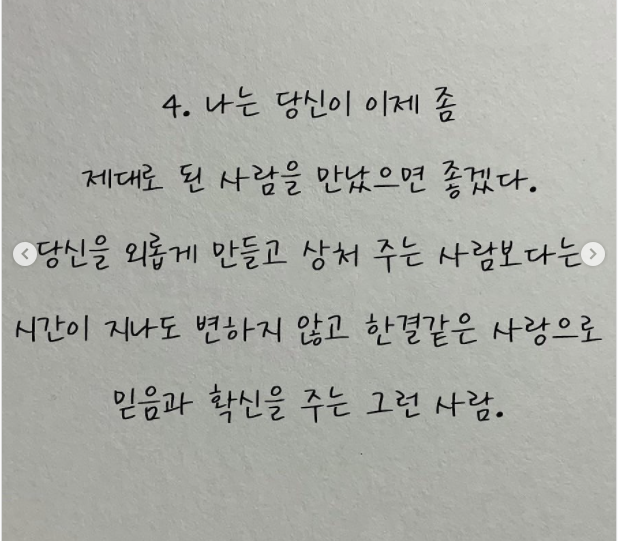 4. 나는 당신이 이제 좀
제대로 된 사람을 만났으면 좋겠다.
당신을 외롭게 만들고 상처 주는 사람보다는
시간이 지나도 변하지 않고 한결같은 사랑으로
믿음과 확신을 주는 그런 사람.